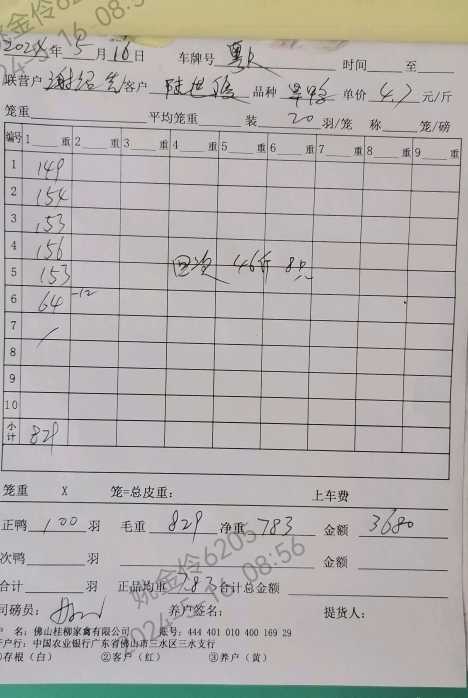 2024年5月16日 车牌号 粤 时间 至
联营户 谢绍先 客户 陆世 品种 旱鸭 单价 4.7 元/斤
笼重 平均笼重 装 20 羽/笼 称 笼/磅
编号 1 重 2 重 3 重 4 重 5 重 6 重 7 重 8 重 9 重
1 149
2 154
3 153
4 156 回次 46斤 8只
5 153
6 64 -12
7 /
8
9
10
小计 829
笼重 X 笼=总皮重: 上车费
正鸭 100 羽 毛重 829 净重 783 金额 3680
次鸭 羽 金额
合计 羽 正品均重 7.83 合计总金额
司磅员: 养户签名: 提货人:
户 名: 佛山桂柳家禽有限公司 账号: 444 401 010 400 169 29
开户行: 中国农业银行广东省佛山市三水区三水支行
①存根（白） ②客户（红） ③养户（黄）
姚金伶6203
2024-5-16 08:56